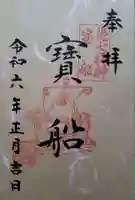 奉拝
寳船
令和六年正月吉日